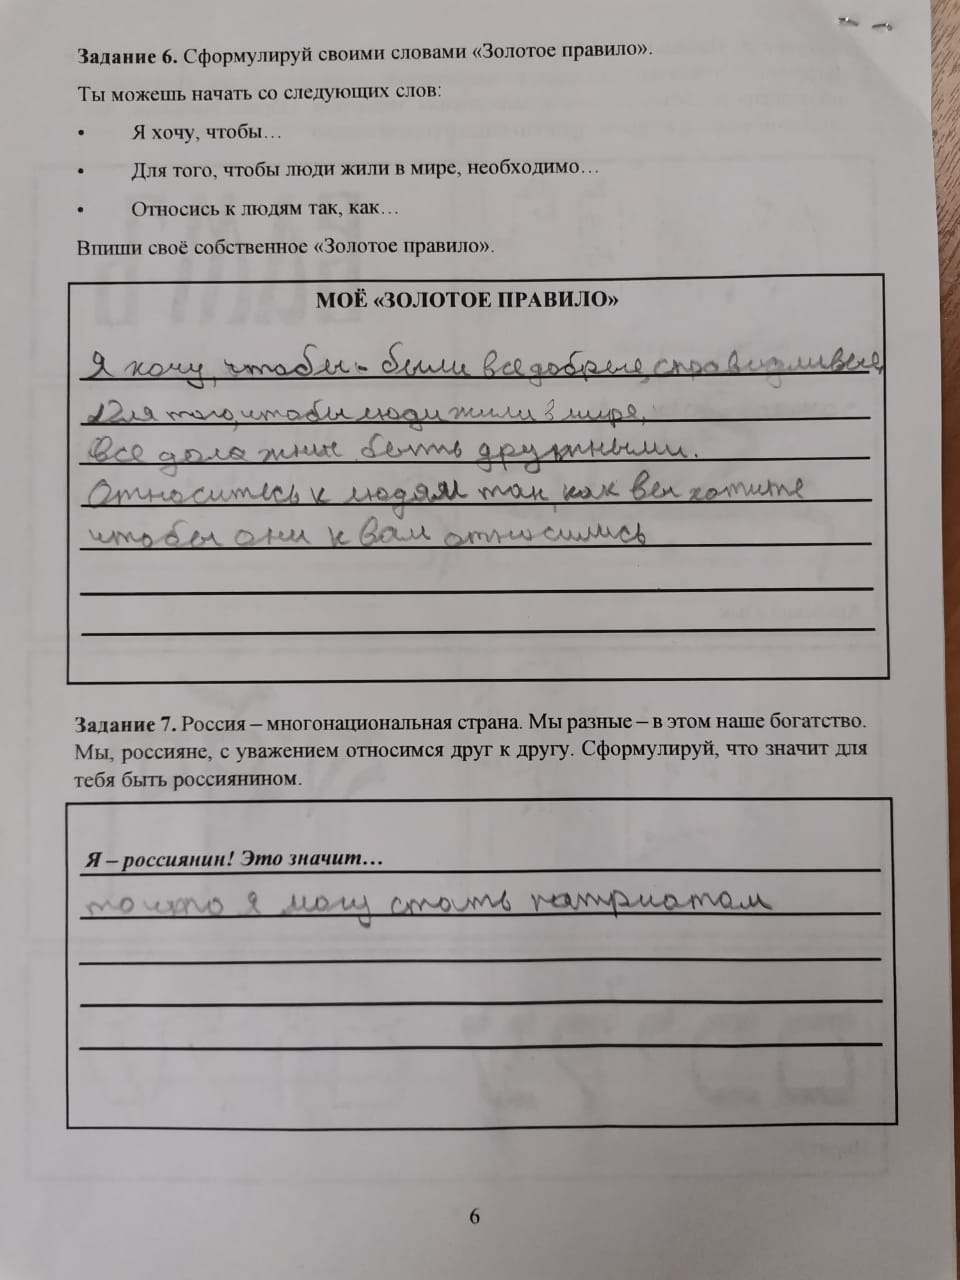 Задание 6. Сформулируй своими словами «Золотое правило».
Ты можешь начать со следующих слов:
• Я хочу, чтобы…
• Для того, чтобы люди жили в мире, необходимо…
• Относись к людям так, как…
Впиши своё собственное «Золотое правило».
МОЁ «ЗОЛОТОЕ ПРАВИЛО»
Я хочу, чтобы - были все добрые, справидливые,
Для того, чтобы люди жили в мире,
Все должны быть дружными.
Относитесь к людям так, как вы хотите
чтобы они к вам относились
Задание 7. Россия – многонациональная страна. Мы разные – в этом наше богатство.
Мы, россияне, с уважением относимся друг к другу. Сформулируй, что значит для
тебя быть россиянином.
Я – россиянин! Это значит…
то что я могу стать патриотам
6